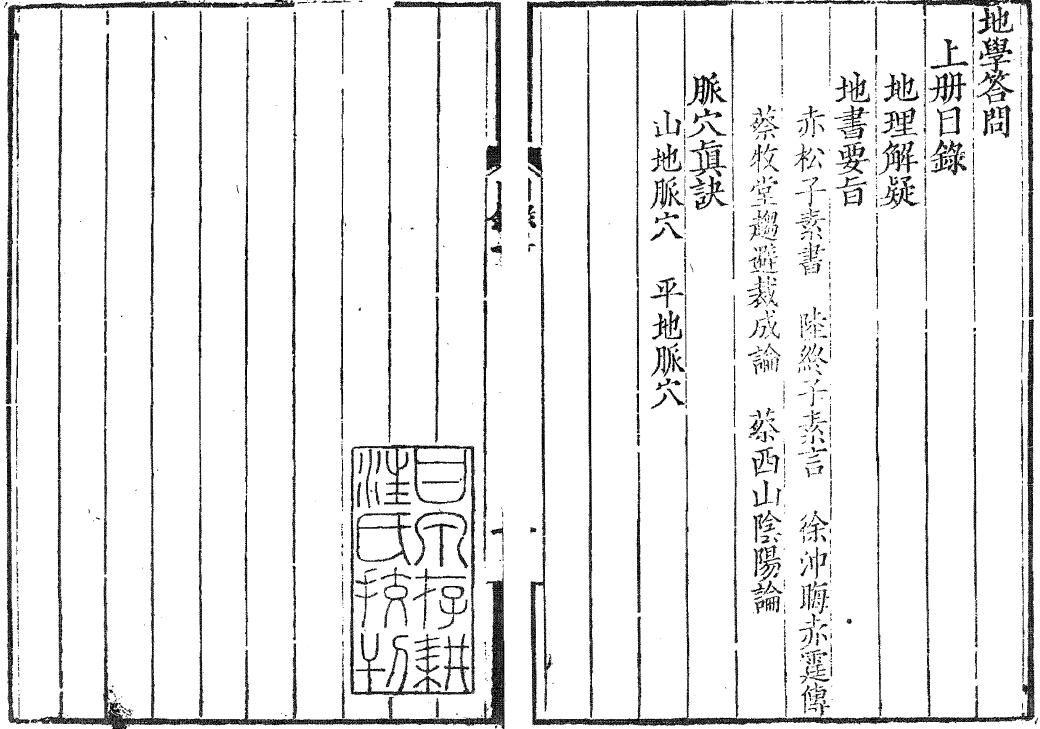 地學答問
上册目錄
地理解疑
地書要旨
赤松子素書　陸終子素言　徐沖晦赤霆傳
蔡牧堂趨避裁成論　蔡西山陰陽論
脈穴眞訣
山地脈穴　平地脈穴